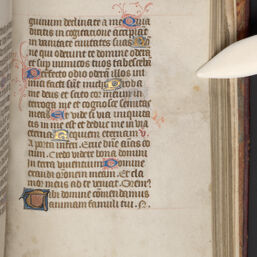 guinum declinate a me Quia
dicitis in cogitatione accipiat
in vanitate civitates suas
ne qui oderunt te domine oderā
et sup inimicos tuos tabescebā
Perfecto odio oderā illos ini
mici facti sūt michi Proba
me deus et scito cor meū in
terroga me et cognosce semitas
meas Et vide si via iniquita
tis in me est et deduc me in via
eterna Requiem eternam
A porta inferi Erue dñe aīas eo
rum Credo videre bona domini
in terra viventium Domine
exaudi orationem meam Et cla
mor meus ad te veniat Orem
Tibi domine cōmendamus
animam famuli tui N